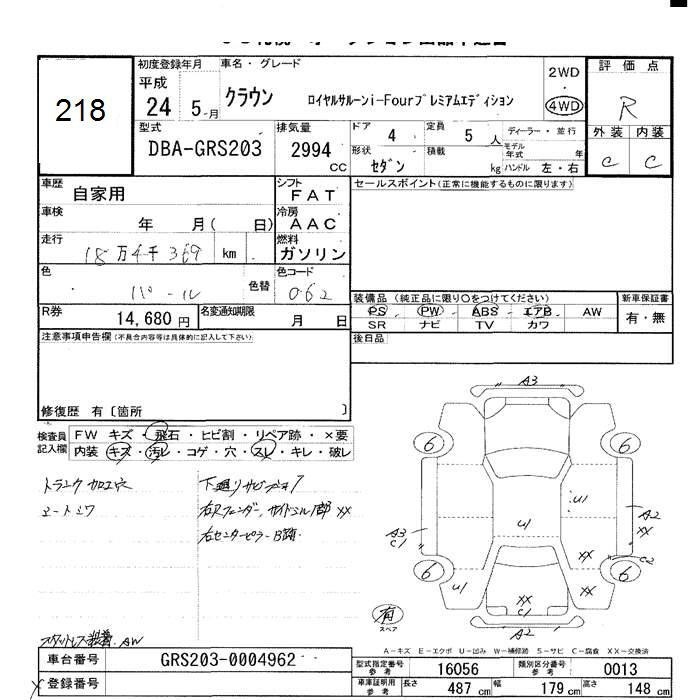 218
初度登録年月
平成
24 5-月
車名・グレード
クラウン ロイヤルサルーンi-Fourプレミアムエディション
2WD
4WD
評価点
R
外装 内装
C C
型式
DBA-GRS203
排気量
2994 CC
ドア 4
定員 5 人
形状 セダン
積載 kg
ディーラー・並行
モデル年式 年
ハンドル 左・右
車歴 自家用
シフト FAT
セールスポイント(正常に機能するものに限ります)
車検 年 月( 日)
冷房 AAC
走行 18万4千369 km
燃料 ガソリン
色 パール
色替
色コード 062
R券 14,680 円
名変通知期限 月 日
装備品(純正品に限り○をつけてください)
PS PW ABS エアB AW
SR ナビ TV カワ
新車保証書
有・無
注意事項申告欄(不具合内容等は具体的に記入して下さい)
後日品
修復歴 有〔箇所 〕
検査員記入欄
FW キズ・飛石・ヒビ割・リペア跡・×要
内装 キズ・汚レ・コゲ・穴・スレ・キレ・破レ
トランク加工穴
シートシワ
下廻りサビ
右センターピラー
スタットレス装着 AW
A3
6 6
U1
U1
A3
C1
A2
XX
XX
C2
6 6
U1
XX
XX
C1
A2
有
スペア
A-キズ E-エクボ U-凹み W-補修跡 S-サビ C-腐食 XX-交換済
車台番号 GRS203-0004962
登録番号
型式指定番号参考 16056
類別区分番号参考 0013
車庫証明用参考 長さ 487 cm 幅 179 cm 高さ 148 cm